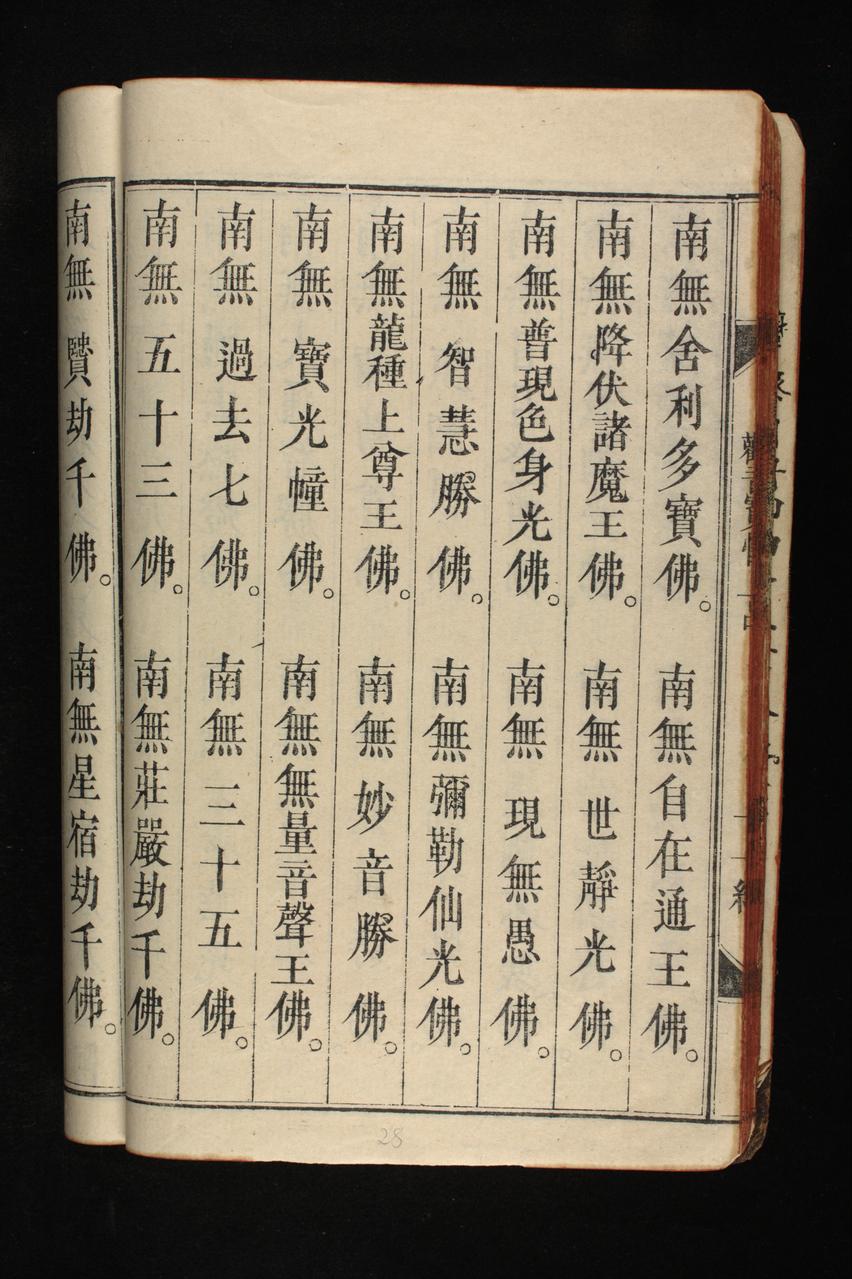 南無舍利多寶佛。　南無自在通王佛。
南無降伏諸魔王佛。　南無世靜光佛。
南無普現色身光佛。　南無現無愚佛。
南無智慧勝佛。　南無彌勒仙光佛。
南無龍種上尊王佛。　南無妙音勝佛。
南無寶光幢佛。　南無無量音聲王佛。
南無過去七佛。　南無三十五佛。
南無五十三佛。　南無莊嚴劫千佛。
南無賢劫千佛。　南無星宿劫千佛。
28